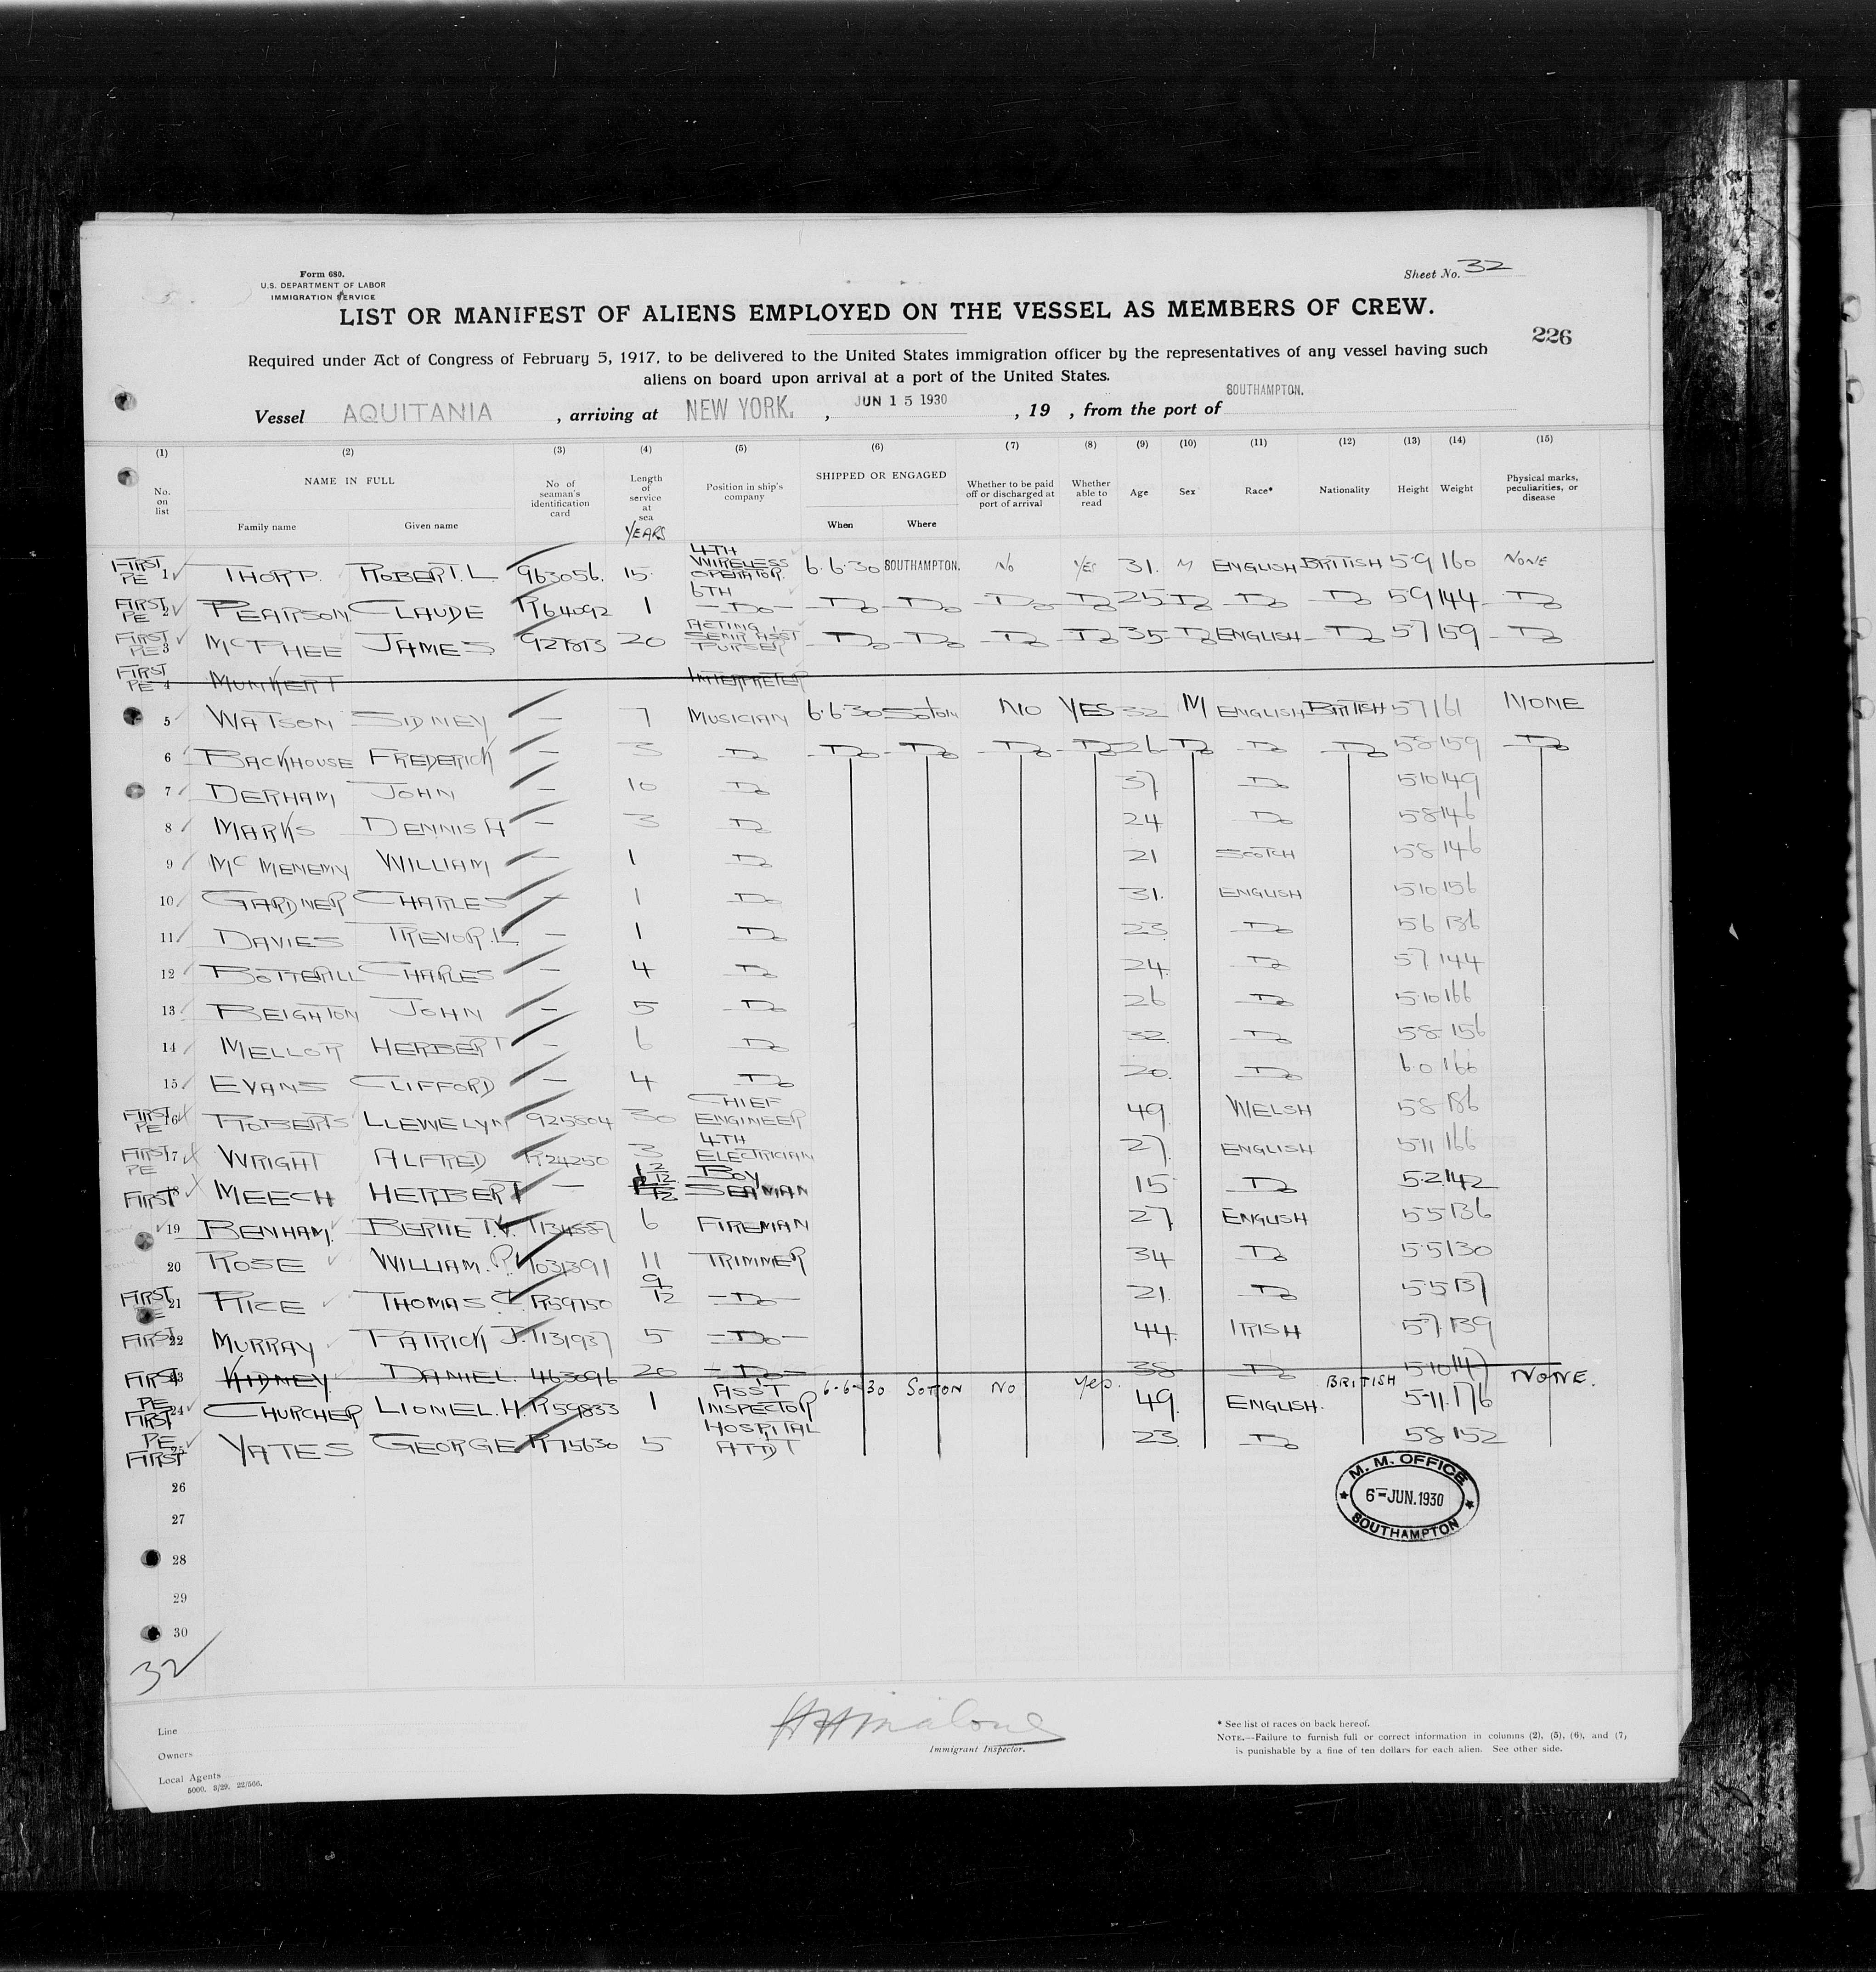 Form 680.
U.S. DEPARTMENT OF LABOR
IMMIGRATION SERVICE
Sheet No. 32
LIST OR MANIFEST OF ALIENS EMPLOYED ON THE VESSEL AS MEMBERS OF CREW.
226
Required under Act of Congress of February 5, 1917, to be delivered to the United States immigration officer by the representatives of any vessel having such
aliens on board upon arrival at a port of the United States.
Vessel AQUITANIA , arriving at NEW YORK. , JUN 15 1930 , 19 , from the port of SOUTHAMPTON.
(1) (2) (3) (4) (5) (6) (7) (8) (9) (10) (11) (12) (13) (14) (15)
No. on list NAME IN FULL Family name Given name No of seaman's identification card Length of service at sea YEARS Position in ship's company SHIPPED OR ENGAGED When Where Whether to be paid off or discharged at port of arrival Whether able to read Age Sex Race* Nationality Height Weight Physical marks, peculiarities, or disease
FIRST PE 1 THORP. ROBERT. L. 963056. 15. 4TH WIRELESS OPERATOR. 6.6.30 SOUTHAMPTON. No YES 31. M ENGLISH BRITISH 5.9 160 NONE
FIRST PE 2 PEARSON. CLAUDE R64092 1 6TH -Do- Do Do Do Do 25 Do Do Do 59 144 Do
FIRST PE 3 McPHEE JAMES 927813 20 ACTING SENR ASST PURSER Do Do Do Do 35 Do ENGLISH Do 57 159 Do
FIRST PE 4 MUNKERT INTERPRETER
5 WATSON SIDNEY — 7 MUSICIAN 6.6.30 SOTON NO YES 32 M ENGLISH BRITISH 57 161 NONE
6 BACKHOUSE FREDERICK — 3 Do Do Do Do Do 26 Do Do Do 58 159 Do
7 DERHAM JOHN — 10 Do 37 Do 510 149
8 MARKS DENNIS A — 3 Do 24 Do 58 146
9 Mc MENEMY WILLIAM — 1 Do 21 SCOTCH 58 146
10 GARDNER CHARLES — 1 Do 31. ENGLISH 510 156
11 DAVIES TREVOR. L — 1 Do 23 Do 56 136
12 BOTTERILL CHARLES — 4 Do 24. Do 57 144
13 BEIGHTON JOHN — 5 Do 26 Do 510 166
14 MELLOR HERBERT — 6 Do 32. Do 58 156
15 EVANS CLIFFORD — 4 Do 20. Do 60 166
FIRST PE 16 ROBERTS LLEWELYN 925804 30 CHIEF ENGINEER 49. WELSH 58 186
FIRST PE 17 WRIGHT ALFRED R24250 3 4TH ELECTRICIAN 27. ENGLISH 511 166
FIRST 18 MEECH HERBERT — 1 2/12 BOY SEAMAN 15 Do 5.2 142
19 BENHAM. BERTIE T.V. 1134887 6 FIREMAN 27 ENGLISH 55 136
20 ROSE WILLIAM. R. 1031391 11 TRIMMER 34 Do 5.5 130
FIRST PE 21 RICE THOMAS C. R59150 9/12 -Do- 21. Do 5.5 137
FIRST 22 MURRAY PATRICK J. 1131937 5 -Do- 44. IRISH 57. 139
FIRST 23 KIDNEY. DANIEL. 463096 20 -Do- 38 Do 510 147
PE FIRST 24 CHURCHER LIONEL. H. R59833 1 ASST INSPECTOR 6-6-30 SOTON NO Yes. 49. ENGLISH. BRITISH 5-11. 176 NONE.
PE FIRST 25 YATES GEORGE R75630 5 HOSPITAL ATTDT 23. Do 58 152
26
27
28
29
30
M. M. OFFICE
6-JUN.1930
SOUTHAMPTON
32
Line
Owners
Local Agents
5000. 3/29. 22/566.
Malone
Immigrant Inspector.
* See list of races on back hereof.
NOTE.—Failure to furnish full or correct information in columns (2), (5), (6), and (7)
is punishable by a fine of ten dollars for each alien. See other side.